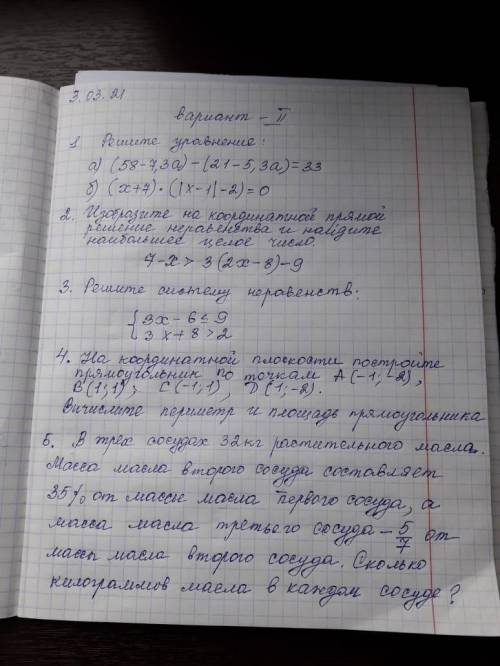 3.03.21
вариант - II
1 Решите уравнение:
а) (58-7,3а)-(21-5,3а)=33
б) (х+7)·(|х-1|-2)=0
2. Изобразите на координатной прямой
решение неравенства и найдите
наибольшее целое число.
7-х>3(2х-8)-9
3. Решите систему неравенств:
{ 3х-6≤9
3х+8>2
4. На координатной плоскости постройте
прямоугольник по точкам А(-1;-2),
В(1;1), С(-1;1), D(1;-2).
Вычислите периметр и площадь прямоугольника
5. В трёх сосудах 32 кг растительного масла.
Масса масла второго сосуда составляет
35% от массы масла первого сосуда, а
масса масла третьего сосуда - 5/7 от
массы масла второго сосуда. Сколько
килограммов масла в каждом сосуде?